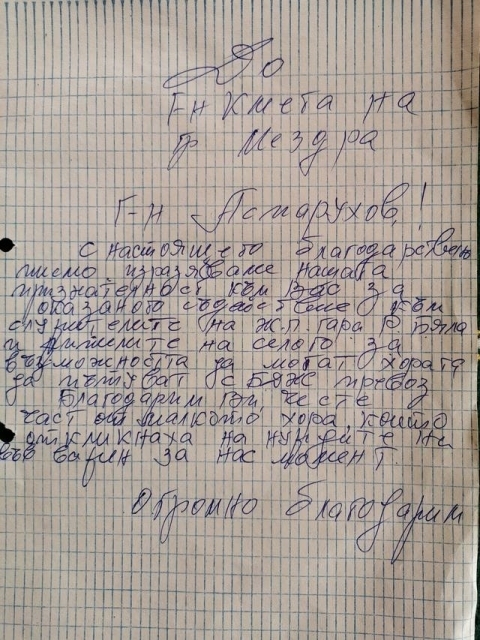 До
Г-н Кмета на
гр Мездра
Г-н Аспарухов,!
С настоящето благодарствено
писмо изразяваме нашата
признателност към Вас за
оказаното съдействие към
служителите на Ж.П. гара Р Бяла
и жителите на селото за
възможността да могат хората
да пътуват с БДЖ превоз
Благодарим Ви, че сте
част от малкото хора, които
откликнаха на нуждите ни
във важен за нас момент.
Огромно благодарим